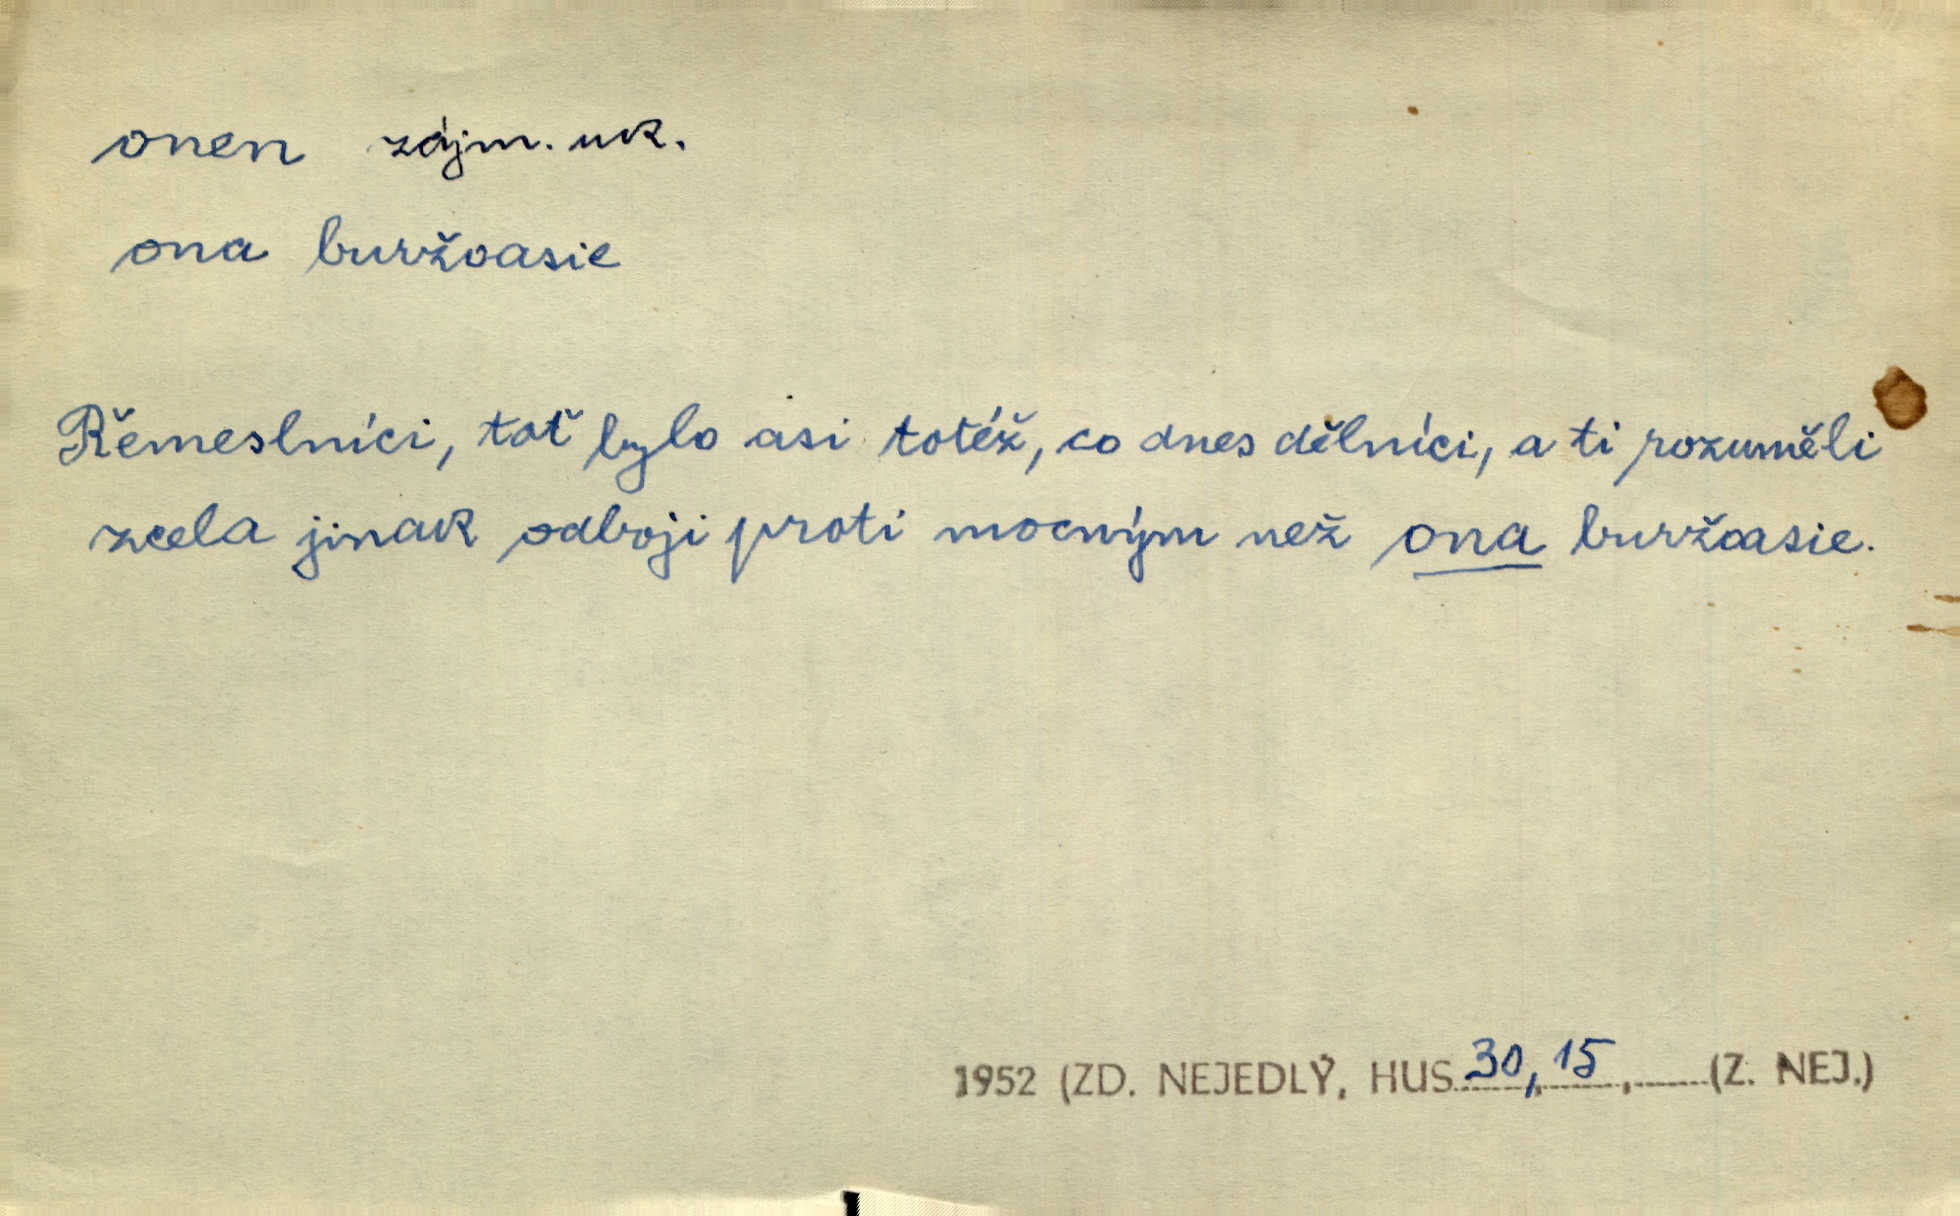 onen zájm. uk.
ona buržoasie
Řemeslníci, toť bylo asi totéž, co dnes dělníci, a ti rozuměli
zcela jinak odboji proti mocným než ona buržoasie.
1952 (ZD. NEJEDLÝ, HUS 30, 15, (Z. NEJ.)